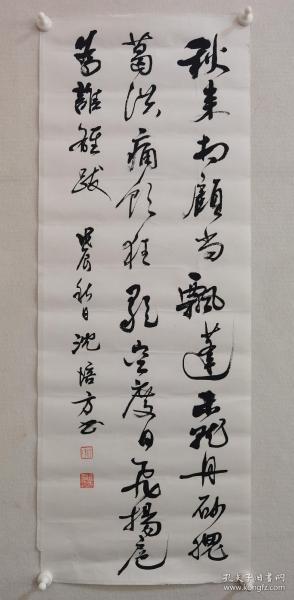 秋来相顾尚飘蓬未就丹砂愧
葛洪痛饮狂歌空度日飞扬扈
为谁雄跋
戊辰秋日沈培方书
孔夫子旧书网